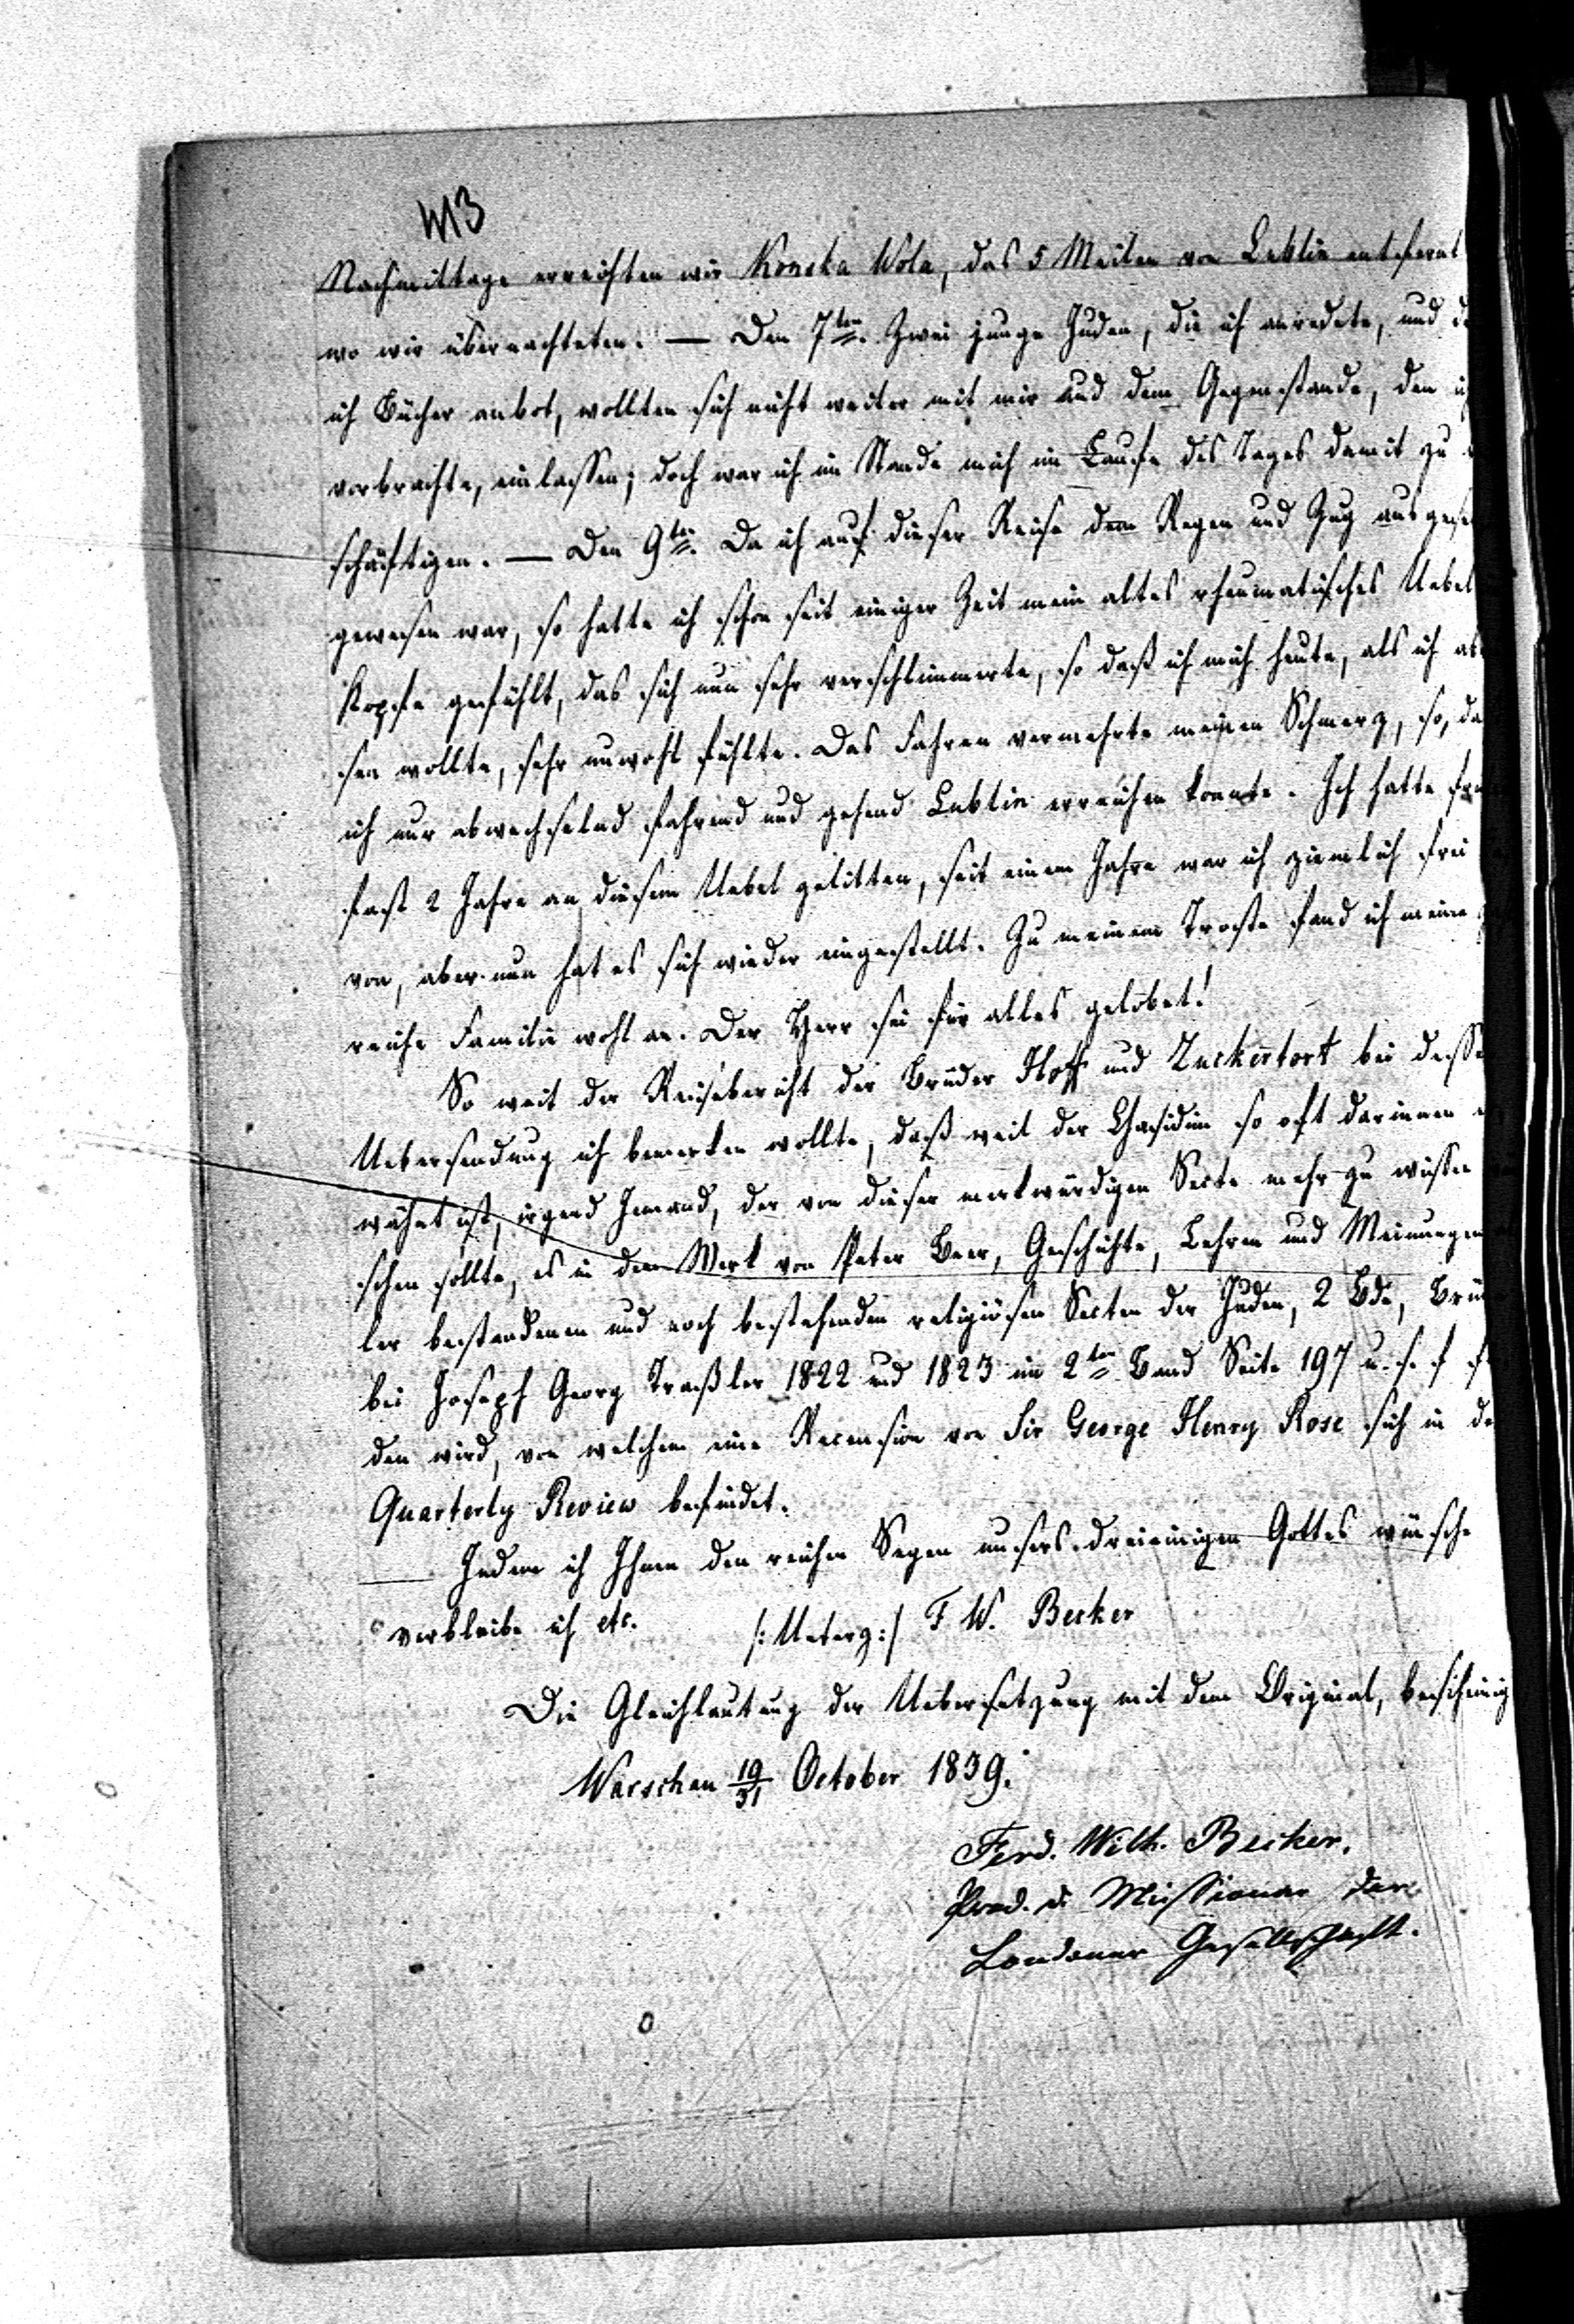 413
Nachmittage erreichten wir Konska Wola, das 5 Meilen von Lublin entfernt
wo wir übernachteten. — Den 7ten. Zwei junge Juden, die ich anredete, und de
ich Bücher anbot, wollten sich nicht weiter mit mir und dem Gegenstande, den ich
vorbrachte, einlassen; doch war ich im Stande mich im Laufe des Tages damit zu
schäftigen. — Den 9ten. Da ich auf dieser Reise dem Regen und Zug ausgese
gewesen war, so hatte ich schon seit einiger Zeit mein altes rheumatisches Uebel
Kopfe gefühlt, das sich nun sehr verschlimmerte, so daß ich mich heute, als ich ab
sen wollte, sehr unwohl fühlte. Das Fahren vermehrte meinen Schmerz, so, da
ich nur abwechselnd fahrend und gehend Lublin erreichen konnte. Ich hatte
fast 2 Jahre an diesem Uebel gelitten, seit einem Jahre war ich ziemlich frei
von, aber nun hat es sich wieder eingestellt. Zu meinem Troste fand ich meine
reiche Familie wohl an. Der Herr sei für alles gelobet!
So weit der Reisebericht der Brüder Hoff und Zuckertort bei desse
Uebersendung ich bemerken wollte, daß weil der Chasidim so oft darinnen
wähnt ist, irgend Jemand, der von dieser merkwürdigen Secte mehr zu wissen
schen sollte, es in dem Werk von Peter Beer, Geschichte, Lehren und Meinungen
ler bestandenen und noch bestehenden religiösen Secten der Juden, 2 Bde, Brün
bei Joseph Georg Traßler 1822 und 1823 im 2ten Band Seite 197 u. s. f
den wird, von welchem eine Recension von Sir George Henry Rose sich in de
Quarterly Review befindet.
Indem ich Ihnen den reichen Segen unsers dreieinigen Gottes wünsche
verbleibe ich etc. /: Unterz :/ F W. Becker
Die Gleichlautung der Uebersetzung mit dem Original, bescheinig
Warschau 19/31 October 1839.
Ferd. Wilh. Becker.
Pred. u. Missionar der
Londoner Gesellschaft.